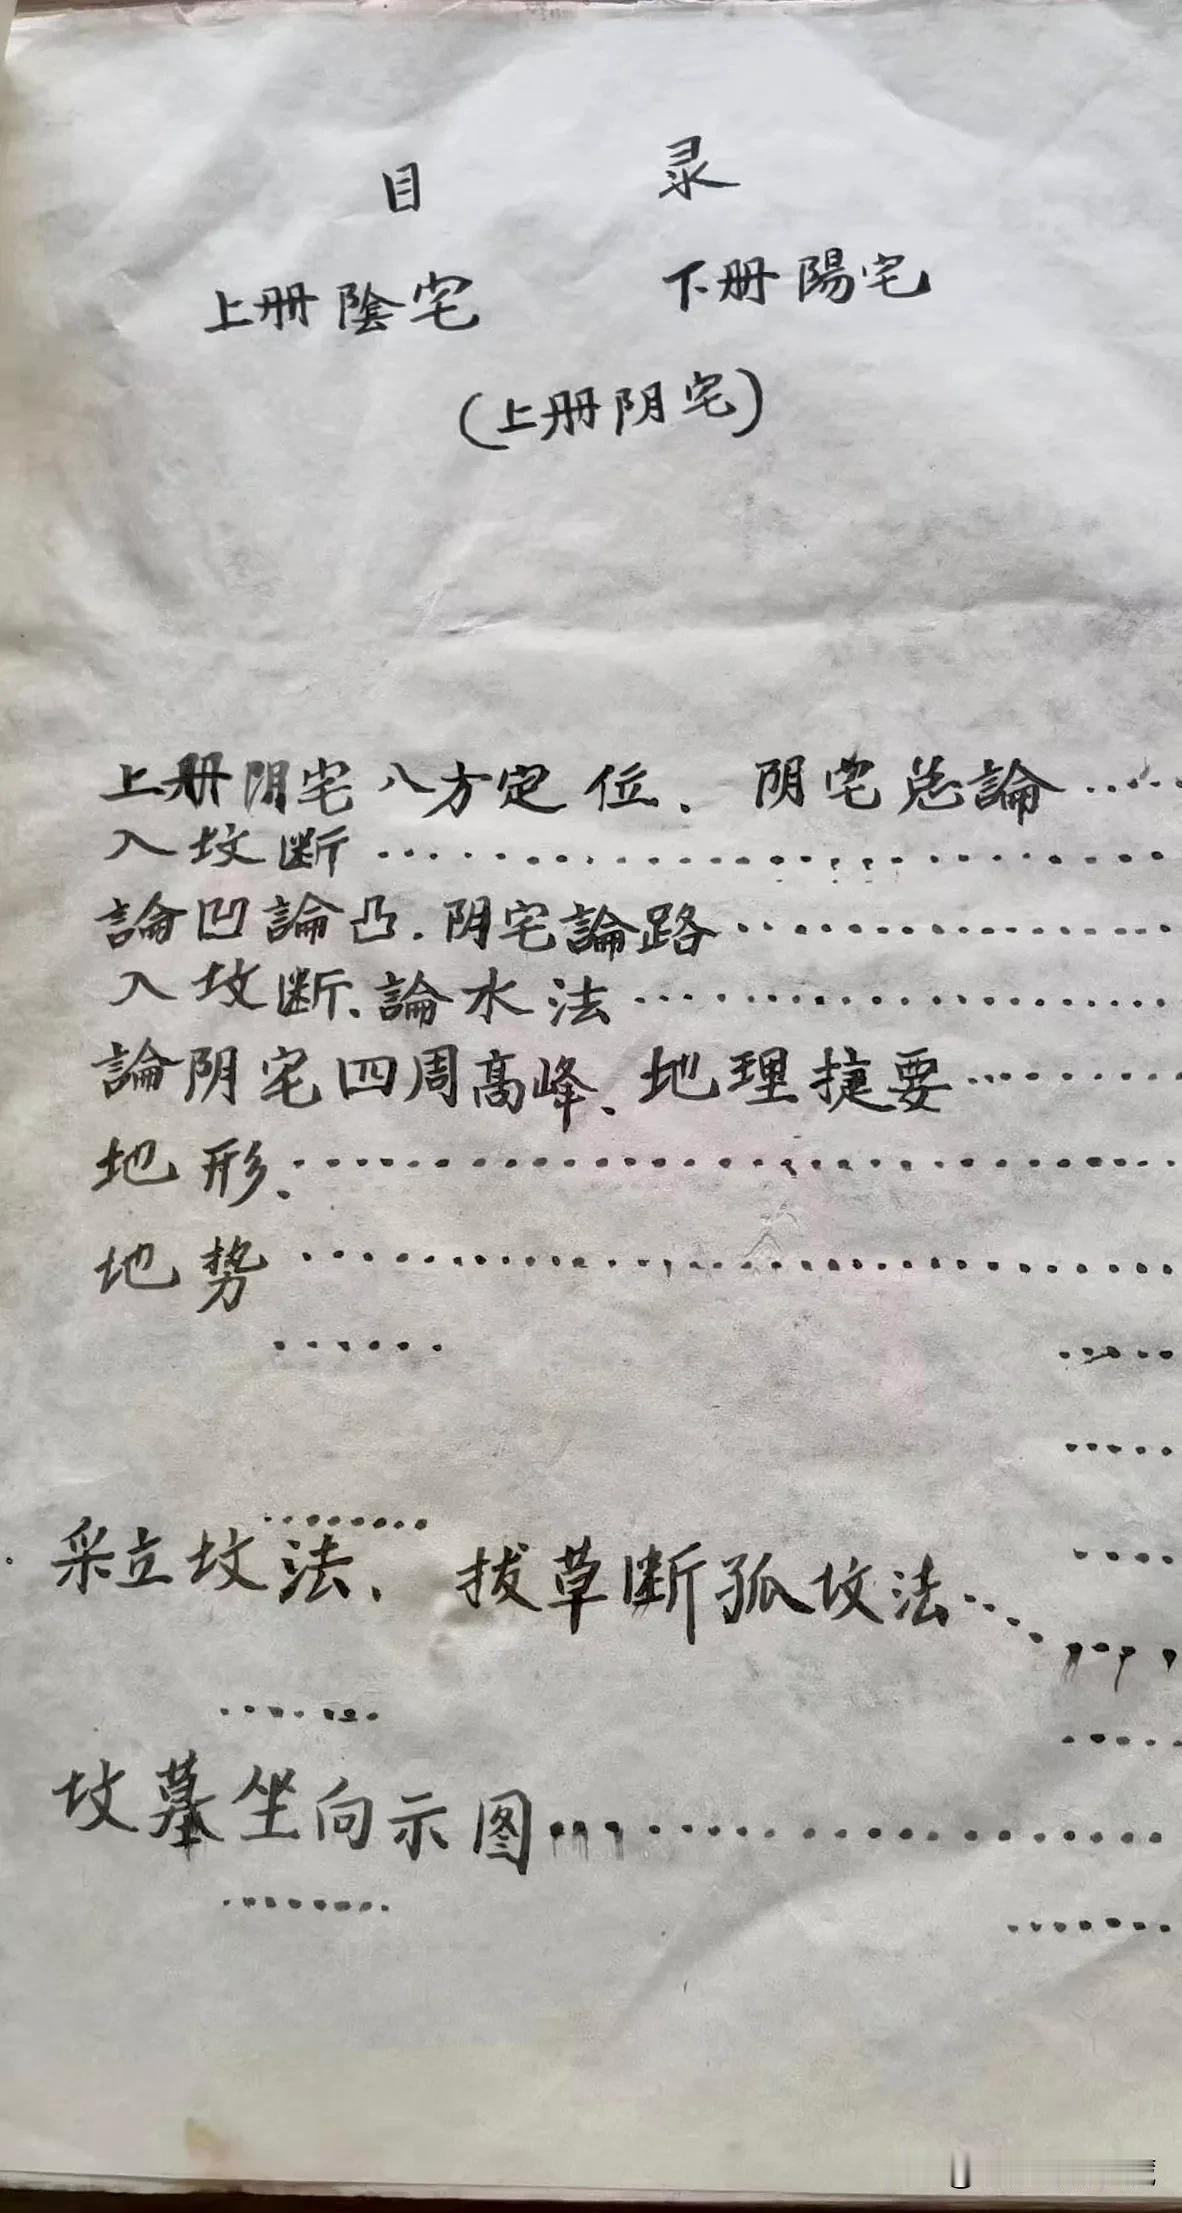 目 录
上册陰宅 下册陽宅
(上册阴宅)
上册阴宅八方定位、阴宅总論……
入坟断……
論凹論凸.阴宅論路……
入坟断、論水法……
論阴宅四周高峰、地理捷要……
地形、……
地势……
采立坟法、拔草断孤坟法……
坟墓坐向示图……